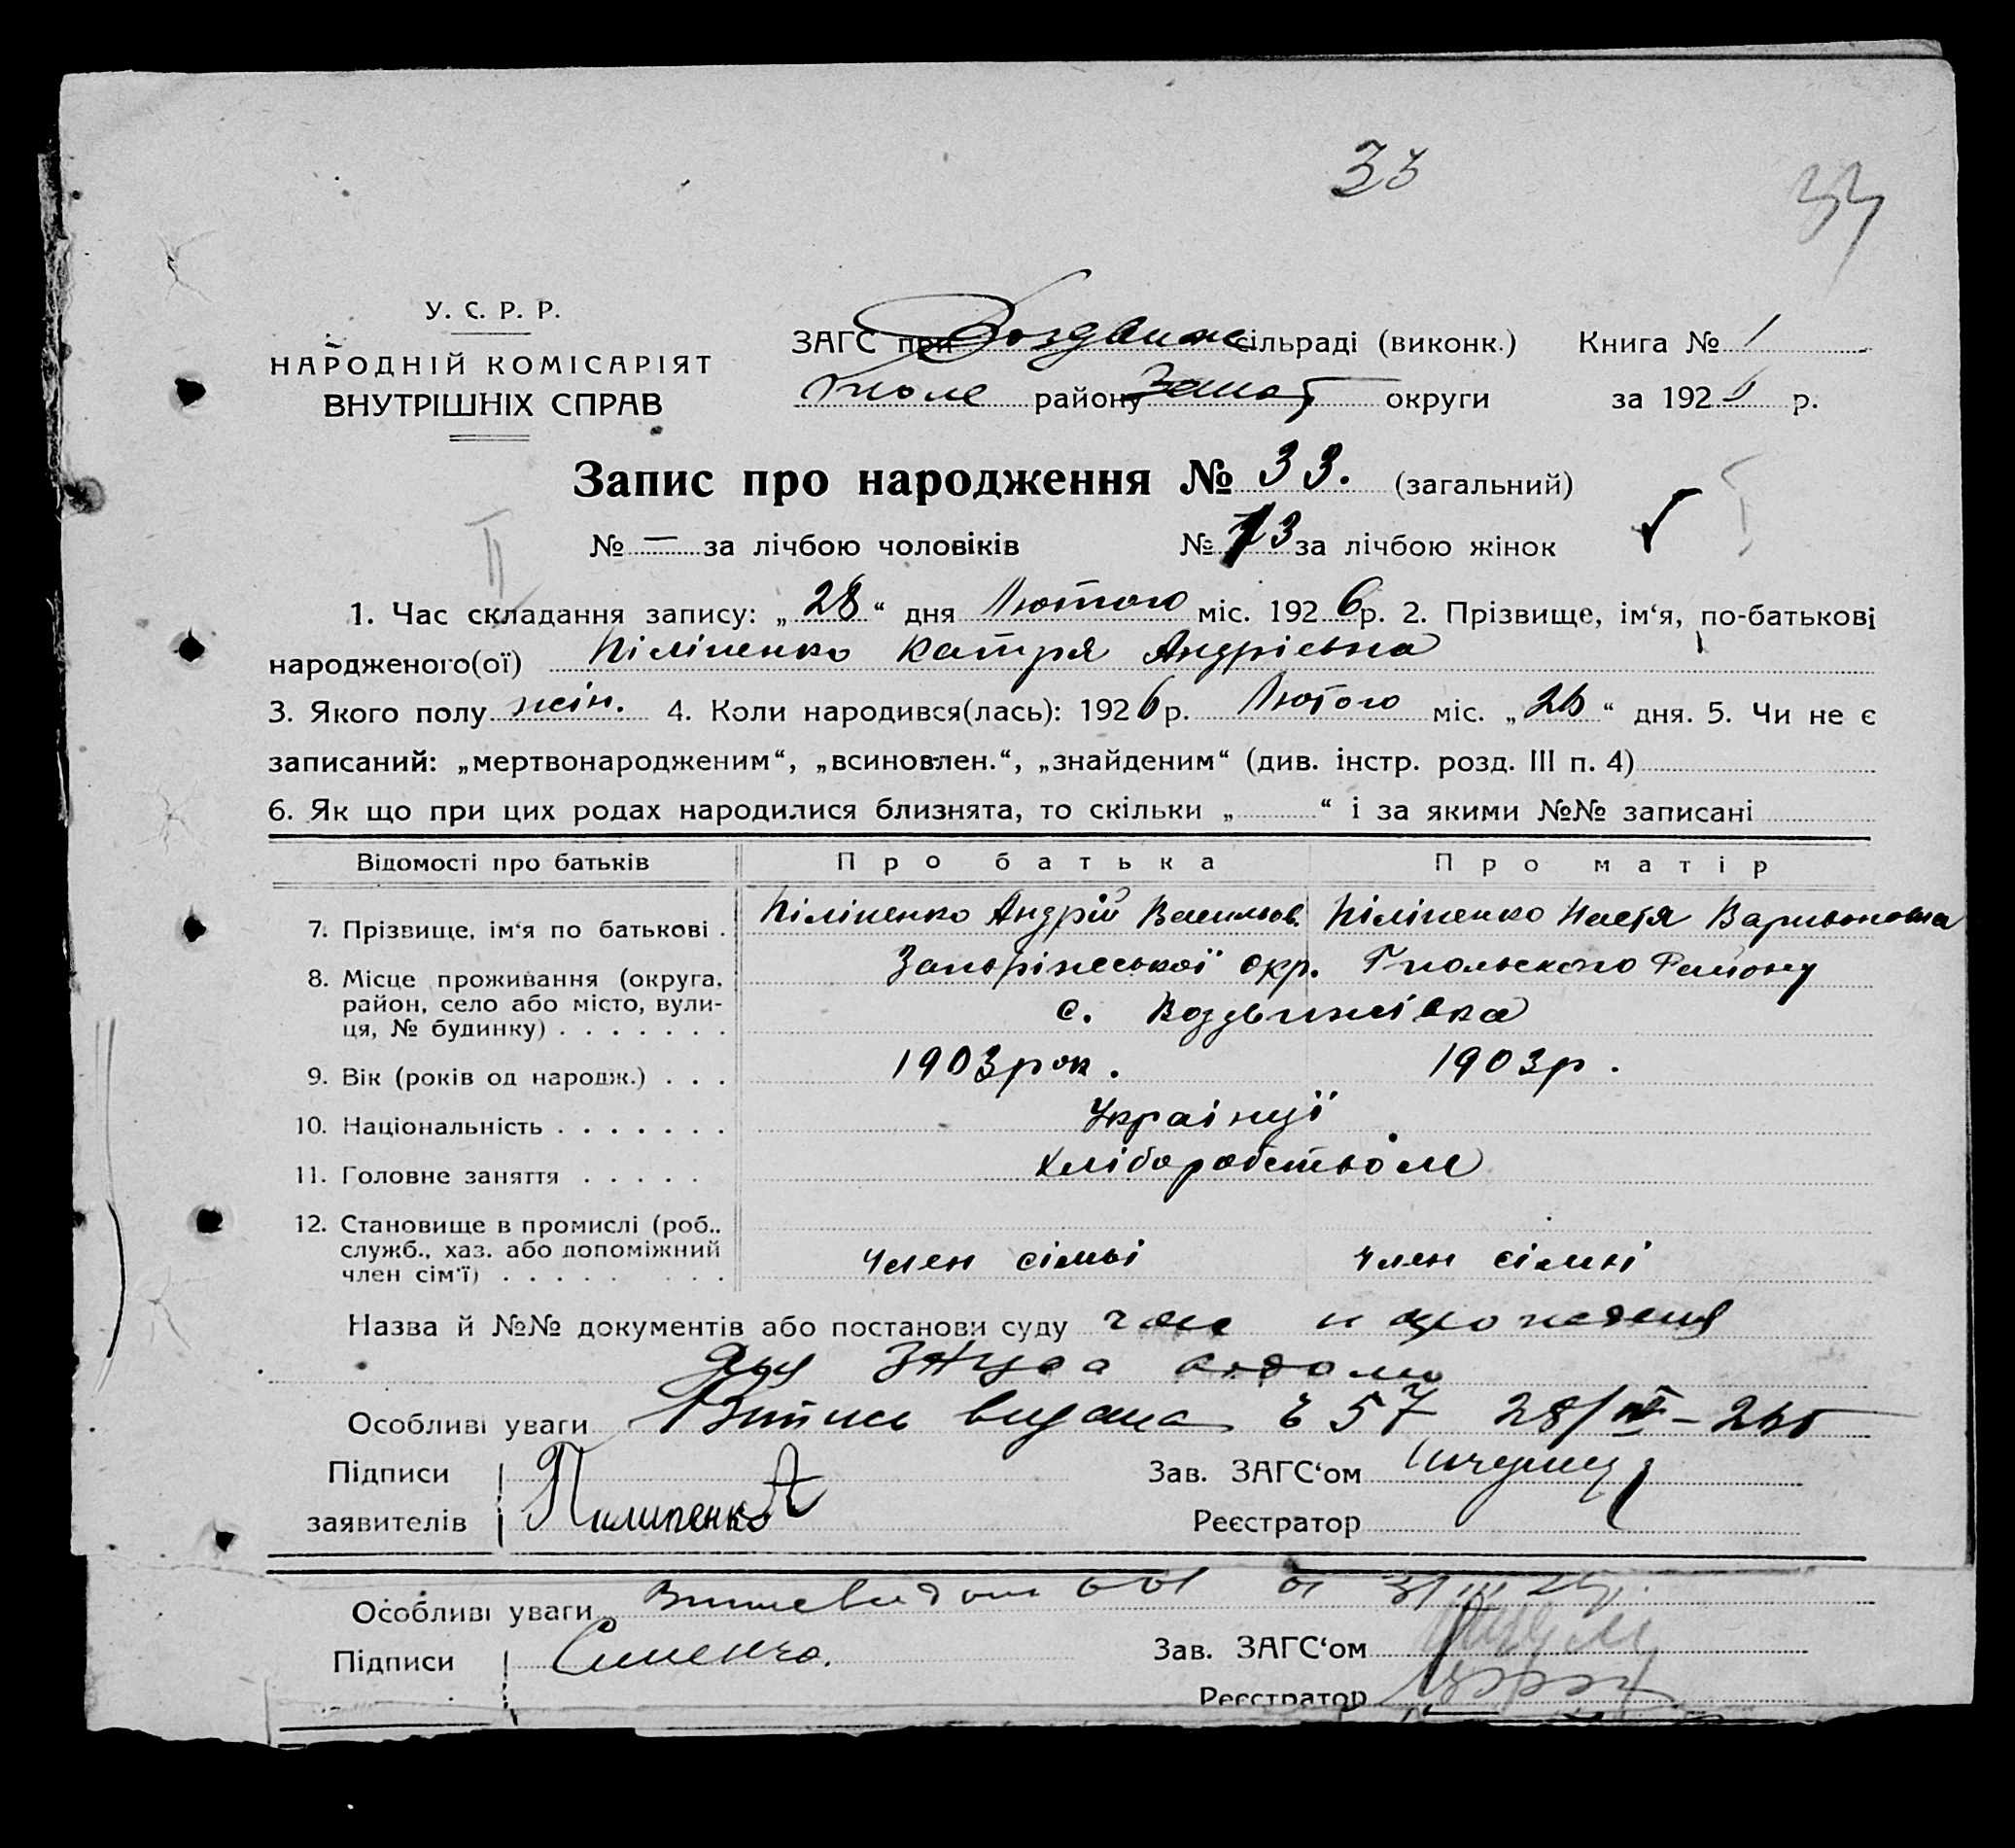 33
У. С. Р. Р.
НАРОДНІЙ КОМІСАРІЯТ
ВНУТРІШНІХ СПРАВ
ЗАГС при Воздвиж сільраді (виконк.) Книга № 1
району округи за 192 6 р.
Запис про народження № 33. (загальний)
№ — за лічбою чоловіків № 13 за лічбою жінок
1. Час складання запису: „ 28 “ дня Лютого міс. 192 6 р. 2. Прізвище, ім‘я, по-батькові
народженого(ої) Піліпенко Катря Андрієвна
3. Якого полу жін. 4. Коли народився(лась): 192 6 р. Лютого міс. „ “ дня. 5. Чи не є
записаний: „мертвонародженим“, „всиновлен.“, „знайденим“ (див. інстр. розд. III п. 4)
6. Як що при цих родах народилися близнята, то скільки „ “ і за якими №№ записані
Відомості про батьків Про батька Про матір
7. Прізвище, ім‘я по батькові . Піліпенко Андрій Васильов. Піліпенко Настя Варивоновна
8. Місце проживання (округа, Запоріжської окр. Гюльского Району
район, село або місто, вули- с. Воздвижівка
ця, № будинку) . . . . . . .
9. Вік (років од народж.) . . . 1903 рок. 1903 р.
10. Національність . . . . . . . Українці
11. Головне заняття . . . . . Хліборобством
12. Становище в промислі (роб..
служб., хаз. або допоміжний член сімьі член сімні
член сім‘ї) . . . . . . . .
Назва й №№ документів або постанови суду
Особливі уваги Випись видана 57 28/
Підписи Зав. ЗАГС‘ом
заявителів Пилипенко А Реєстратор
Особливі уваги
Підписи Зав. ЗАГС‘ом
Реєстратор